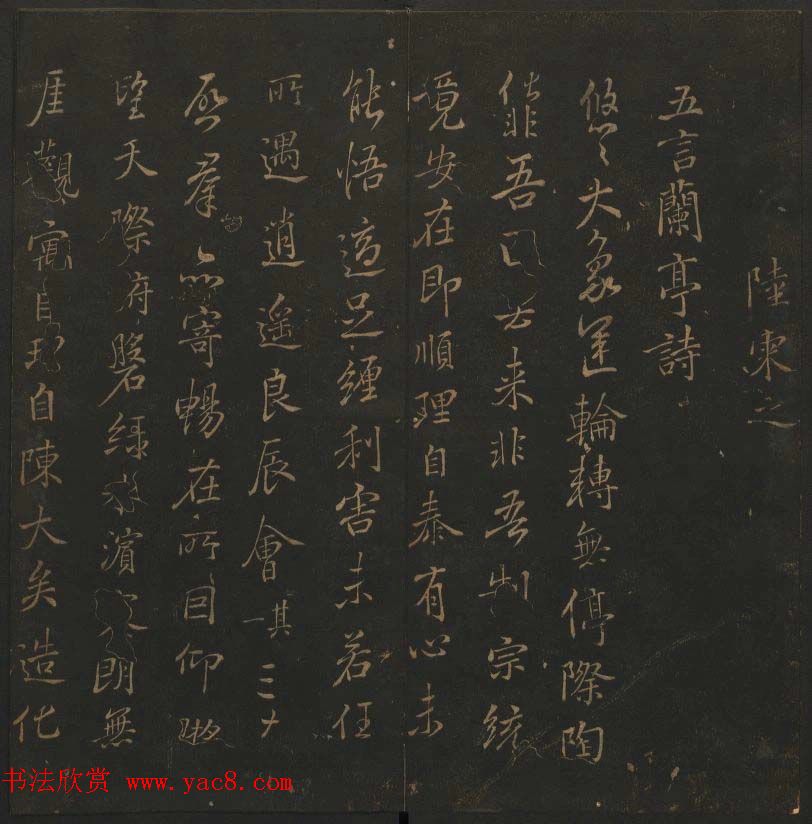 陸柬之
五言蘭亭詩
悠〻大象運輪轉無停際陶
化非吾去来非吾制宗統
竟安在即順理自泰有心未
能悟適足纏利害未若任
所遇逍遥良辰會其一三
啓羣品寄暢在所因仰
望天際俯磐緑水濱朗無
厓觀寓目理自陳大矣造化
书法欣赏 www.yac8.com